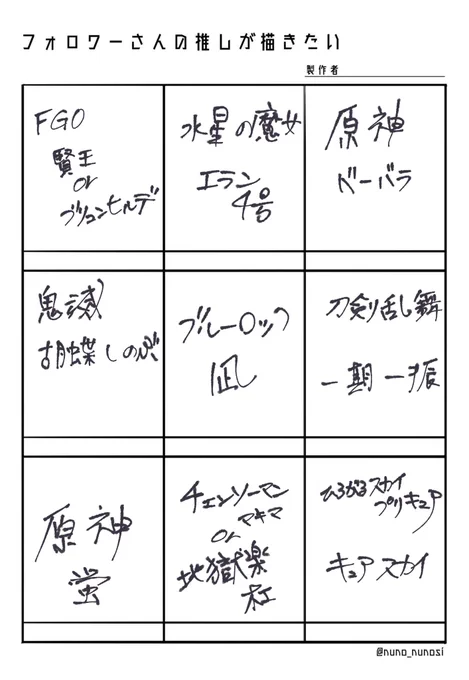 フォロワーさんの推しが描きたい
製作者
FGO
賢王
or
ブリュンヒルデ
水星の魔女
エラン
4号
原神
バーバラ
鬼滅
胡蝶しのぶ
ブルーロック
凪
刀剣乱舞
一期一振
原神
蛍
チェンソーマン
マキマ
or
地獄楽
杠
ひろがるスカイ
プリキュア
キュアスカイ
@nuno_nunosi